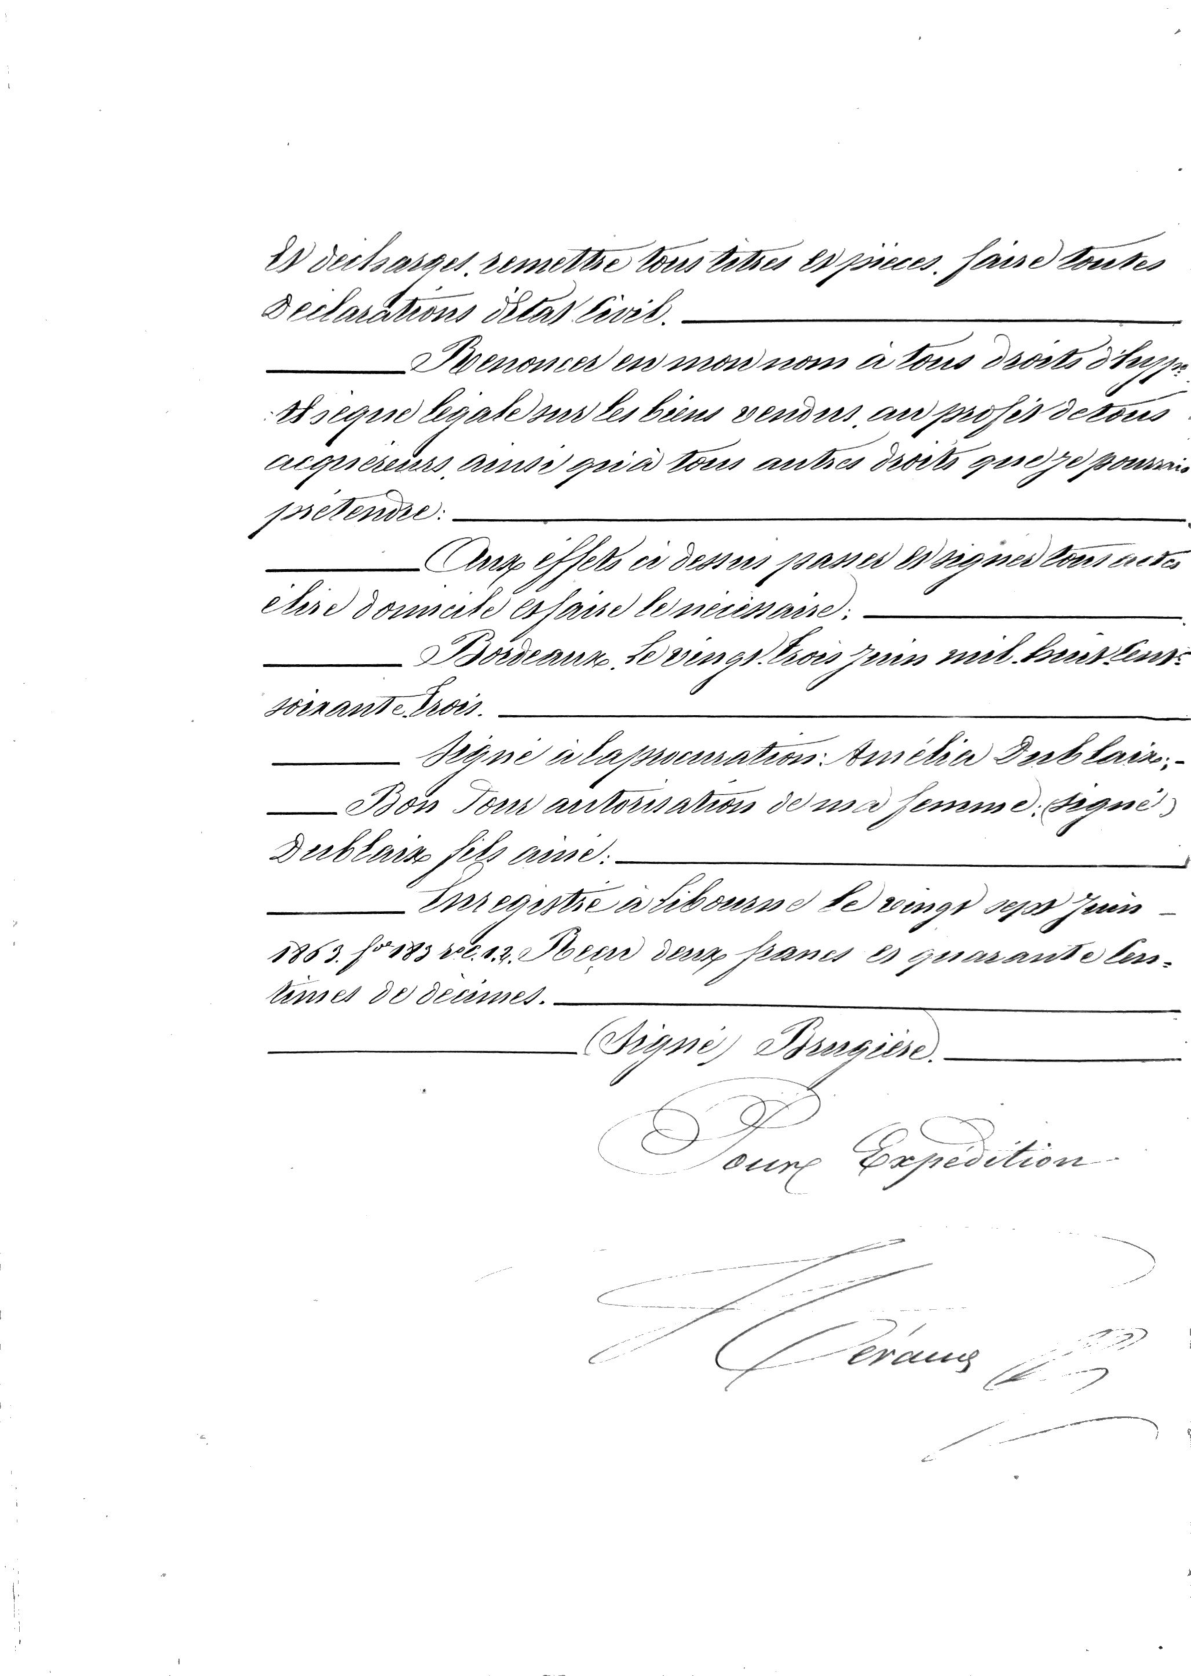 Et décharges, remettre tous titres et pièces, faire toutes
Déclarations d'état Civil.
Renoncer en mon nom à tous droits d'hypo
:thèque légale sur les biens vendus, au profit de tous
acquéreurs, ainsi qu'à tous autres droits que je pourrais
prétendre:
Aux effets ci dessus passer et signer tous actes
élire domicile et faire le nécessaire:
Bordeaux, le vingt trois Juin mil huit Cent
soixante trois.
Signé à la procuration: Amélia Dublaix;-
Bon Pour autorisation de ma femme: (Signé)
Dublaix fils ainé:
Enregistré à Libourne le vingt sept Juin
1863. fo 183 ro C. 1.2. Reçu deux francs et quarante Cen-
times de décimes.
(Signé) Brugière.
Pour Expédition